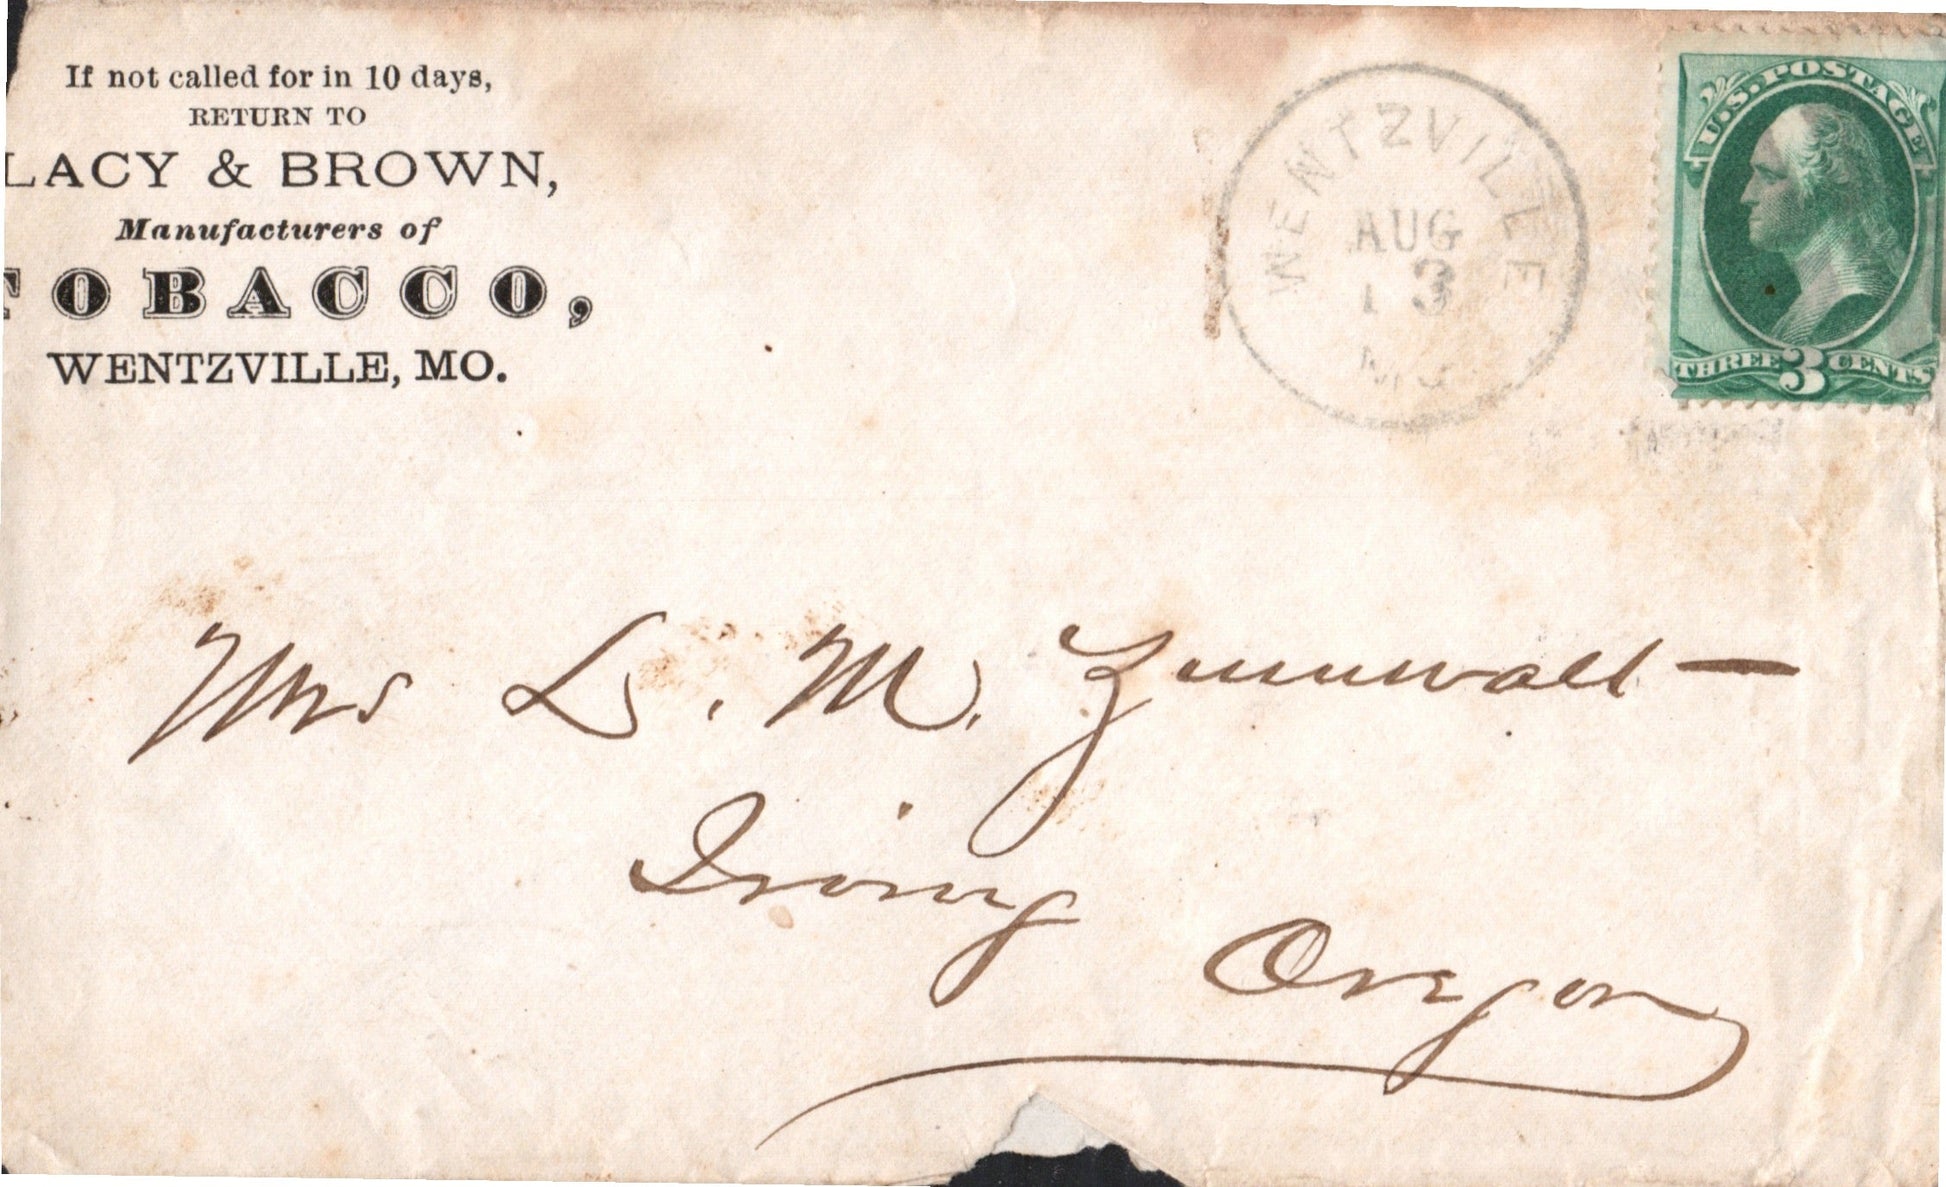 If not called for in 10 days,
RETURN TO
LACY & BROWN,
Manufacturers of
TOBACCO,
WENTZVILLE, MO.
WENTZVILLE
AUG
13
MO
U.S. POSTAGE
THREE 3 CENTS
Mrs L. M. Zumwalt
Irving
Oregon